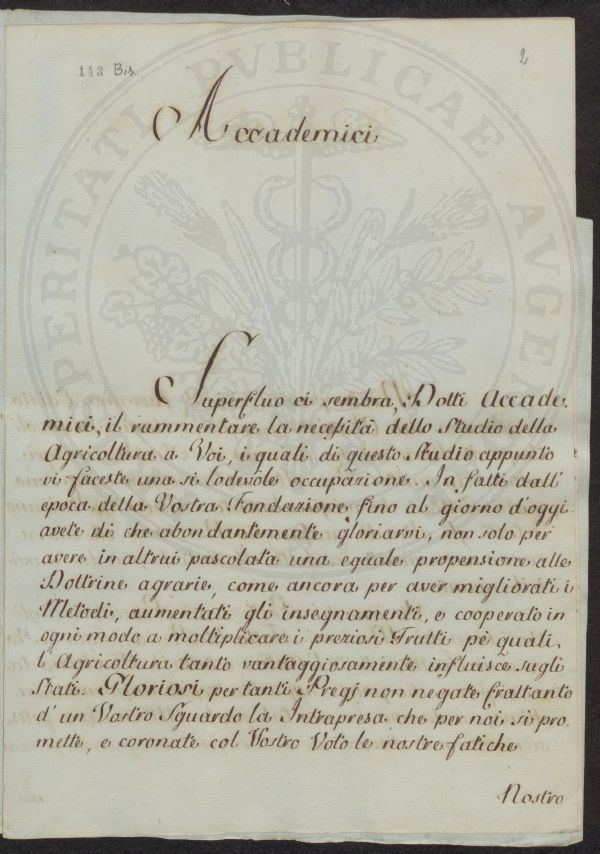 143 Bis.
2
PERITATI PVBLICAE AVGEN
Accademici
Superfluo ci sembra, Dotti Accade-
mici, il rammentare la necessità dello Studio della
Agricoltura a Voi, i quali di questo Studio appunto
vi faceste una si lodevole occupazione. In fatti dall'
epoca della Vostra Fondazione fino al giorno d'oggi
avete di che abondantemente gloriarvi, non solo per
avere in altrui pascolata una eguale propensione alle
Dottrine agrarie, come ancora per aver migliorati i
Metodi, aumentati gli insegnamenti, e cooperato in
ogni modo a moltiplicare i preziosi Frutti pè quali
l'Agricoltura tanto vantaggiosamente influisce sugli
Stati. Gloriosi per tanti Pregj non negate frattanto
d'un Vostro Sguardo la Intrapresa che per noi si pro
mette, e coronate col Vostro Voto le nostre fatiche
Nostro